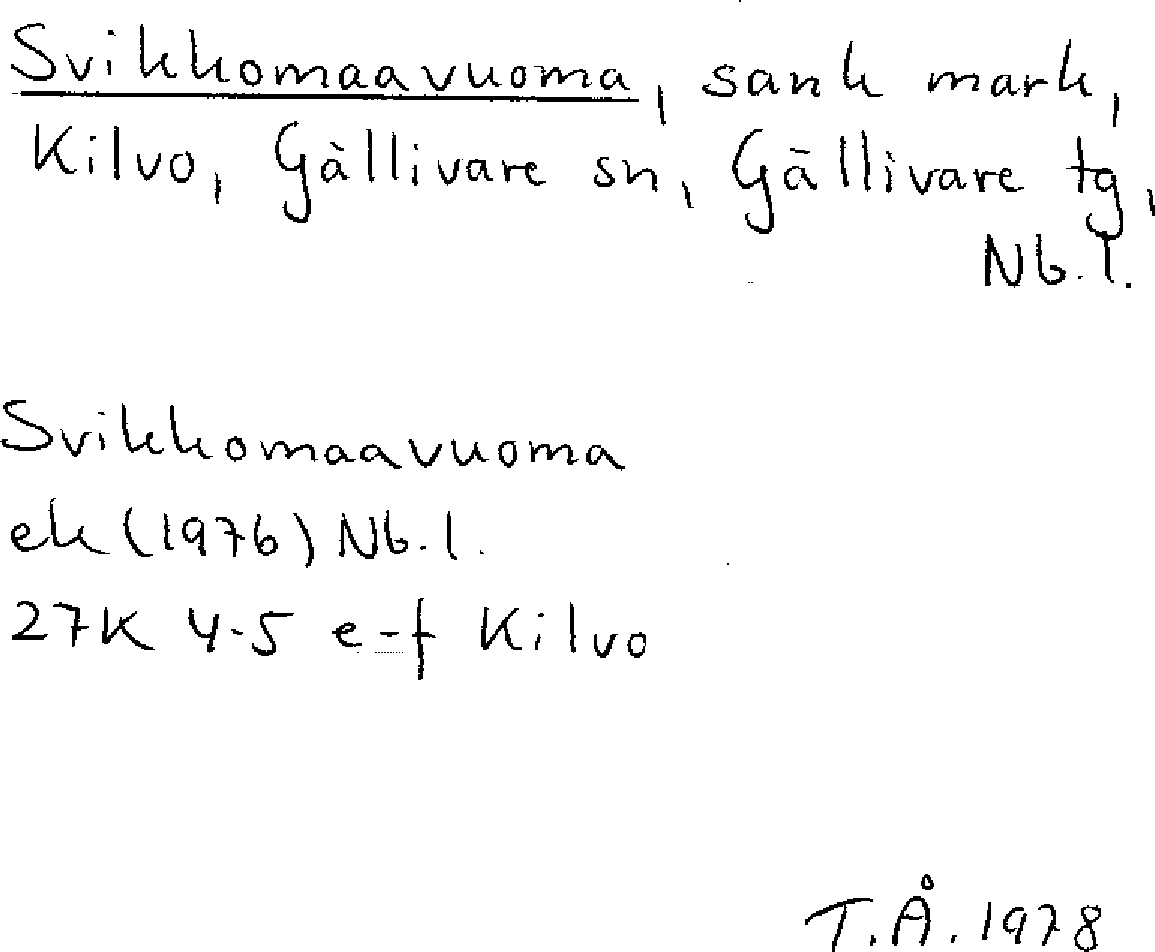 Svikkomaavuoma, sank mark,
Kilvo, Gällivare sn, Gällivare tg,
Nb.l.
Svikkomaavuoma
ek (1976) Nb.l.
27K 4-5 e-f Kilvo
T.Å. 1978